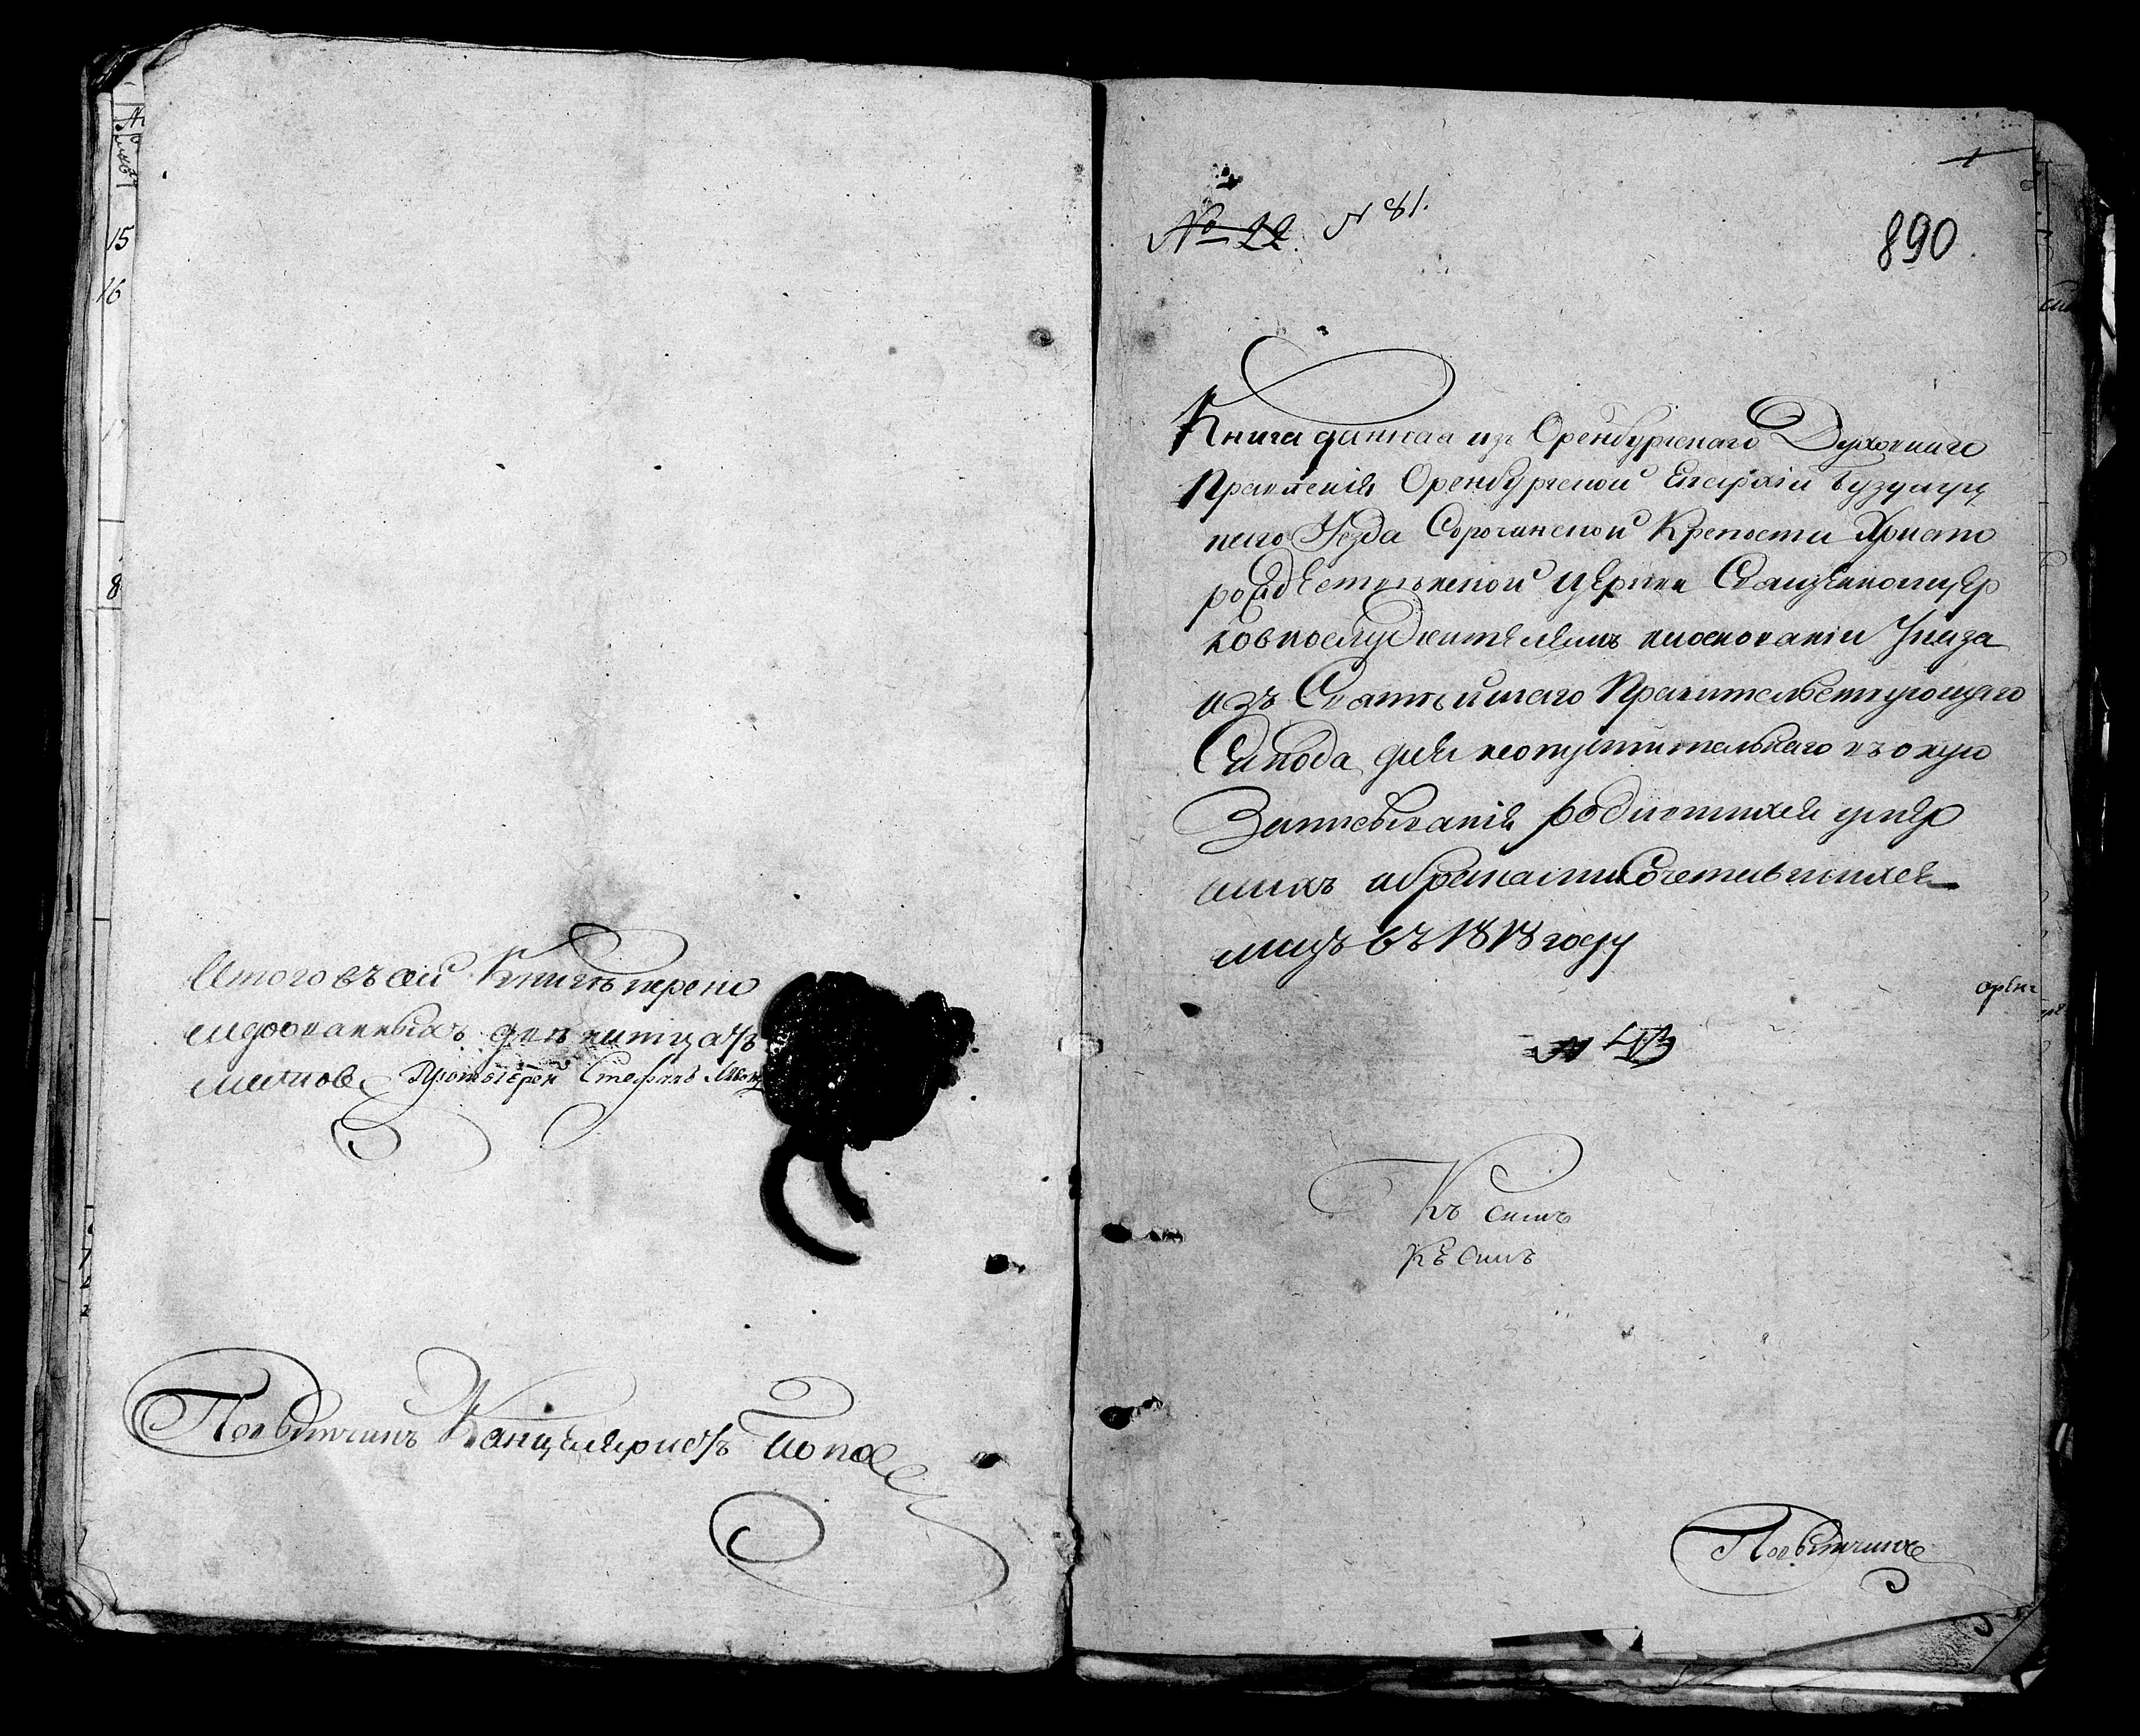 Итого въ сей Книгѣ перено
мѣрованныхъ дватцать
листов. Протоіерей Стефанъ
Повытчикъ Канцеляристъ Попов
№ 22. N 81.
1
890
Книга данная изъ Оренбургскаго Духовнаго
Правленія Оренбургской Епархіи Бузулуц
каго Уезда Сорочинской Крепости Христо
рождественской церкви Священноцер
ковнослужителямъ на основаніи Указа
изъ Святѣйшаго Правительствующаго
Синода для неопустительнаго въ оную
Записыванія родившихся умер
шихъ и бракомъ Сочетавшихся
лицъ въ 1818 году
N 43
Къ симъ
Къ симъ
Повытчикъ
15
16
8